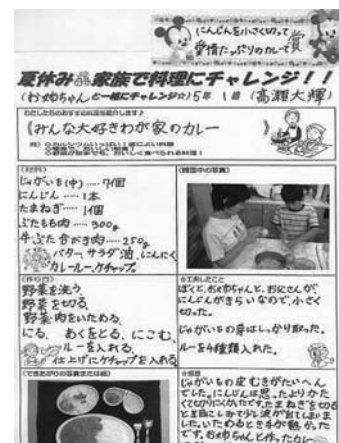 にんじんを小さく切って
愛情たっぷりのカレーで賞
夏休み 家族で料理にチャレンジ!!
(お姉ちゃんと一緒にチャレンジ☆)5年 1組(高瀬大輝)
わたしたちのおすすめ料理を紹介します♪
《みんな大好きわが家のカレー
(材料)
じゃがいも(中)……7個
にんじん……1本
たまねぎ……1個
ぶたもも肉……300g
牛ぶた合がき肉……250g
バター、サラダ油、にんにく
カレールー、ケチャップ
(作り方)
野菜を洗う
野菜を切る
野菜、肉をいためる
にる、あくをとる、にこむ、
ルーを入れる
仕上げにケチャップを入れる
(できあがりの写真または絵)
(調理中の写真)
☆工夫したこと
ぼくと、お姉ちゃんと、お父さんが、
にんじんがきらいなので、小さく
切った。
じゃがいもの芽はしっかり取った。
ルーを4種類入れた。
☆感想
じゃがいもの皮むきがたいへん
でした。にんじんは思ったよりかた
くて切りにくかったです。たまねぎを切る
と目にしみて少し涙が出てしまいま
した。いためるとき手が熱かった
です。お姉ちゃんと作ったカレー